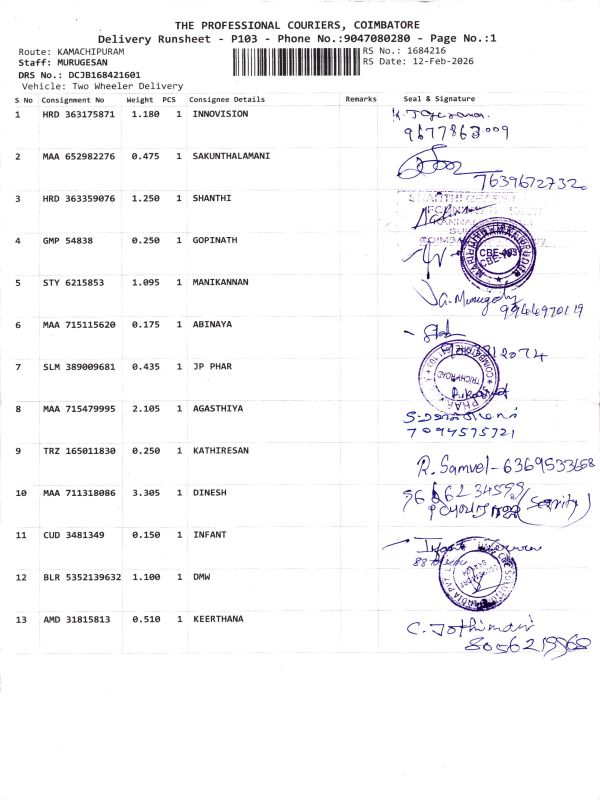 THE PROFESSIONAL COURIERS, COIMBATORE
Delivery Runsheet - P103 - Phone No.:9047080280 - Page No.:1
Route: KAMACHIPURAM
RS No.: 1684216
Staff: MURUGESAN
RS Date: 12-Feb-2026
DRS No.: DCJB168421601
Vehicle: Two Wheeler Delivery
S No Consignment No Weight PCS Consignee Details Remarks Seal & Signature
1 HRD 363175871 1.180 1 INNOVISION
9677863009
2 MAA 652982276 0.475 1 SAKUNTHALAMANI
7639672732
3 HRD 363359076 1.250 1 SHANTHI
4 GMP 54838 0.250 1 GOPINATH
5 STY 6215853 1.095 1 MANIKANNAN
9944970119
6 MAA 715115620 0.175 1 ABINAYA
7 SLM 389009681 0.435 1 JP PHAR
TRICHY ROAD
8 MAA 715479995 2.105 1 AGASTHIYA
7094575721
9 TRZ 165011830 0.250 1 KATHIRESAN
R. Samvel - 6369533658
10 MAA 711318086 3.305 1 DINESH
11 CUD 3481349 0.150 1 INFANT
Infant
12 BLR 5352139632 1.100 1 DMW
13 AMD 31815813 0.510 1 KEERTHANA
C. Jothimani
8056219968